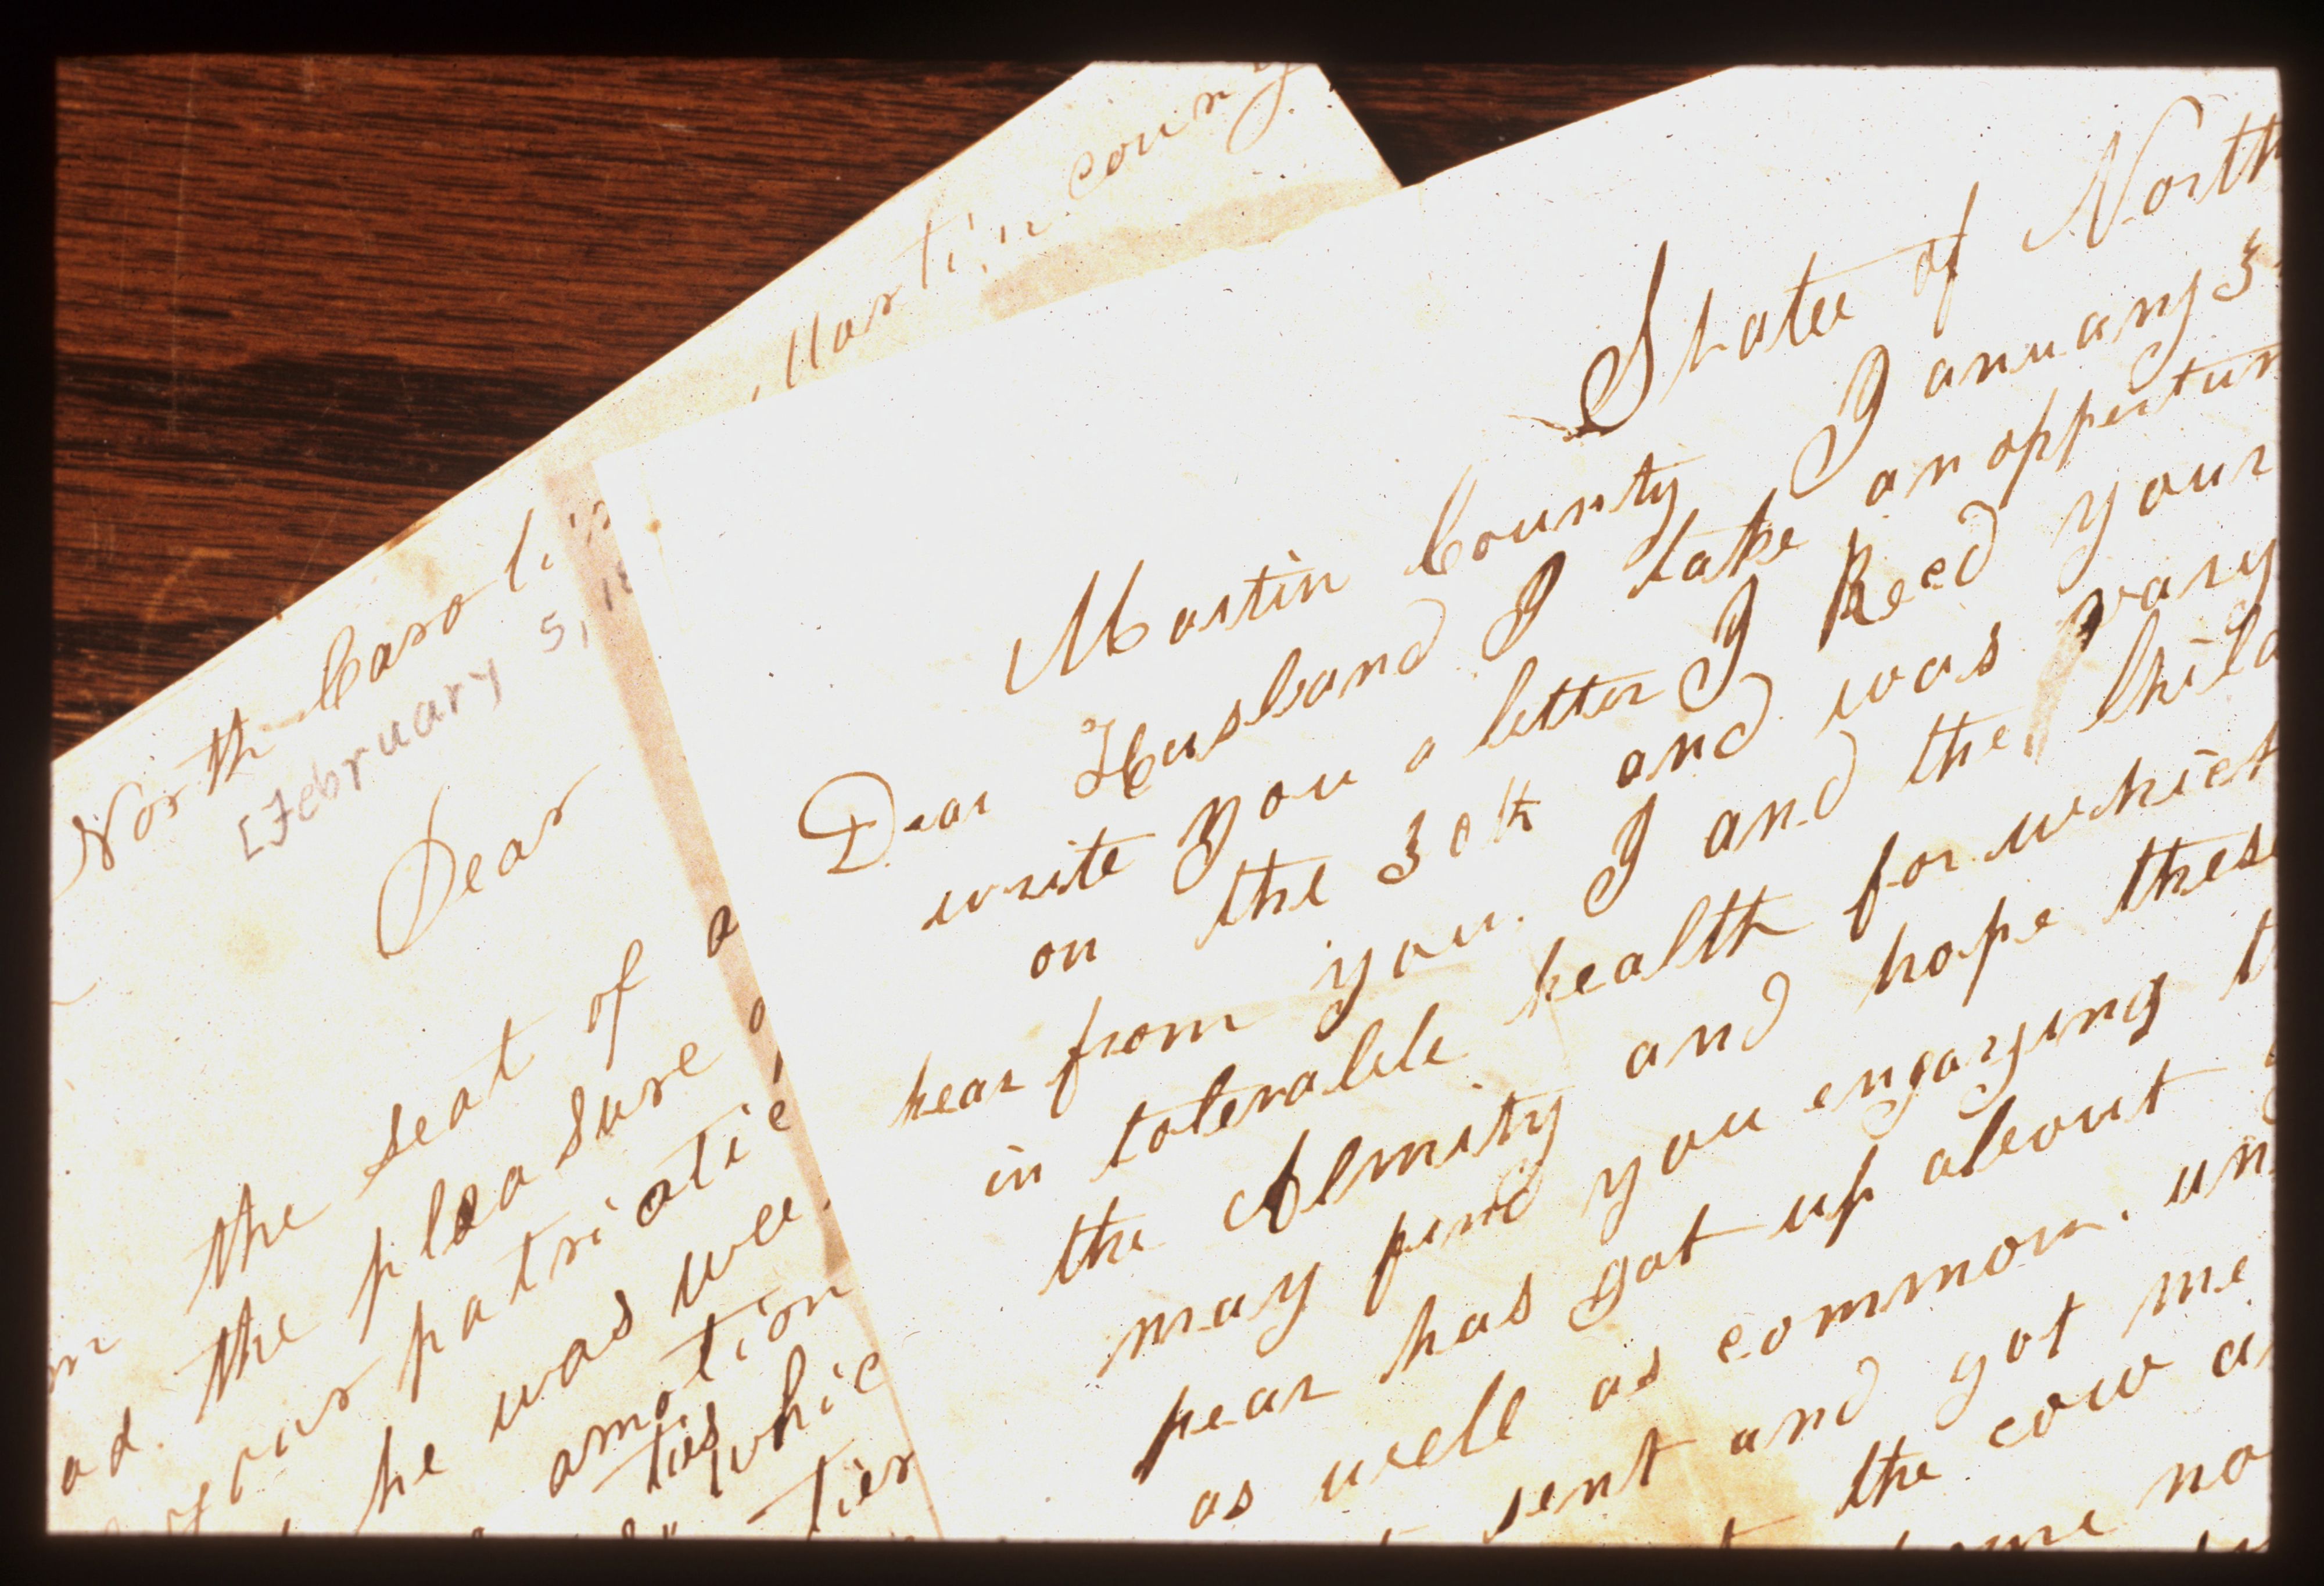 Martin coun
North Carolin
[February 5, 18
Dear
the seat of a
ad the pleasure
your patriotic
he was wee
amotion
ties
whic
ties
State of North
Martin County January 3
Dear Husband I take an oppertun
write you a letter I Reed your
on the 30th and was vary
hear from you. I and the Child
in tolerable health for which
the Almity and hope these
may find you engaying t
pear has got up about
as well as common. un
sent and got me
the cow a
no